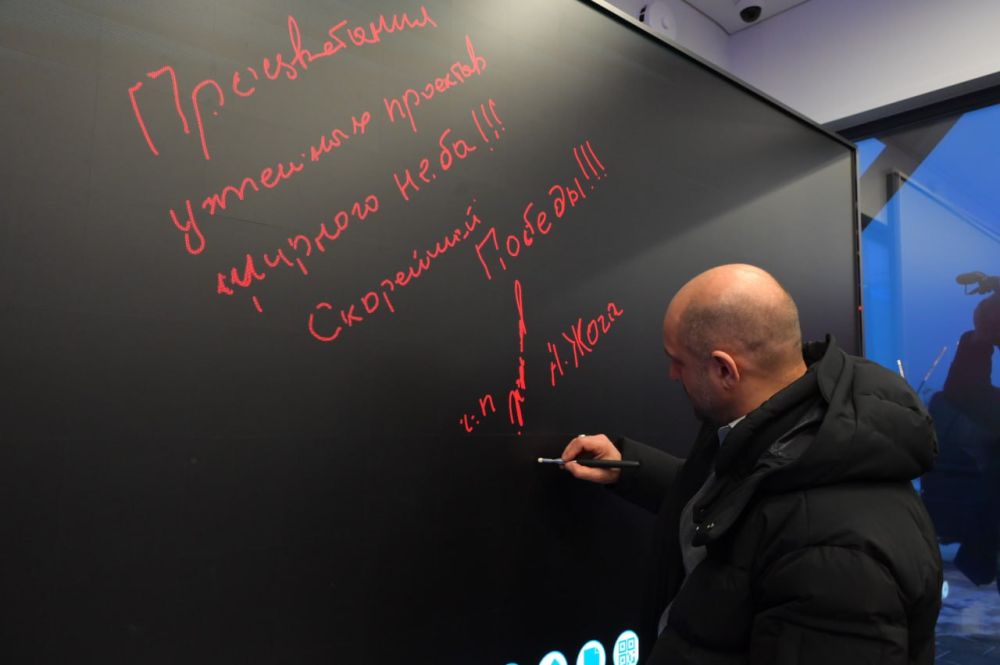 Процветания
успешных проектов
мирного неба!!!
Скорейшей
Победы!!!
А. Жога